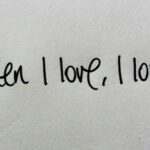 en I love, I lo